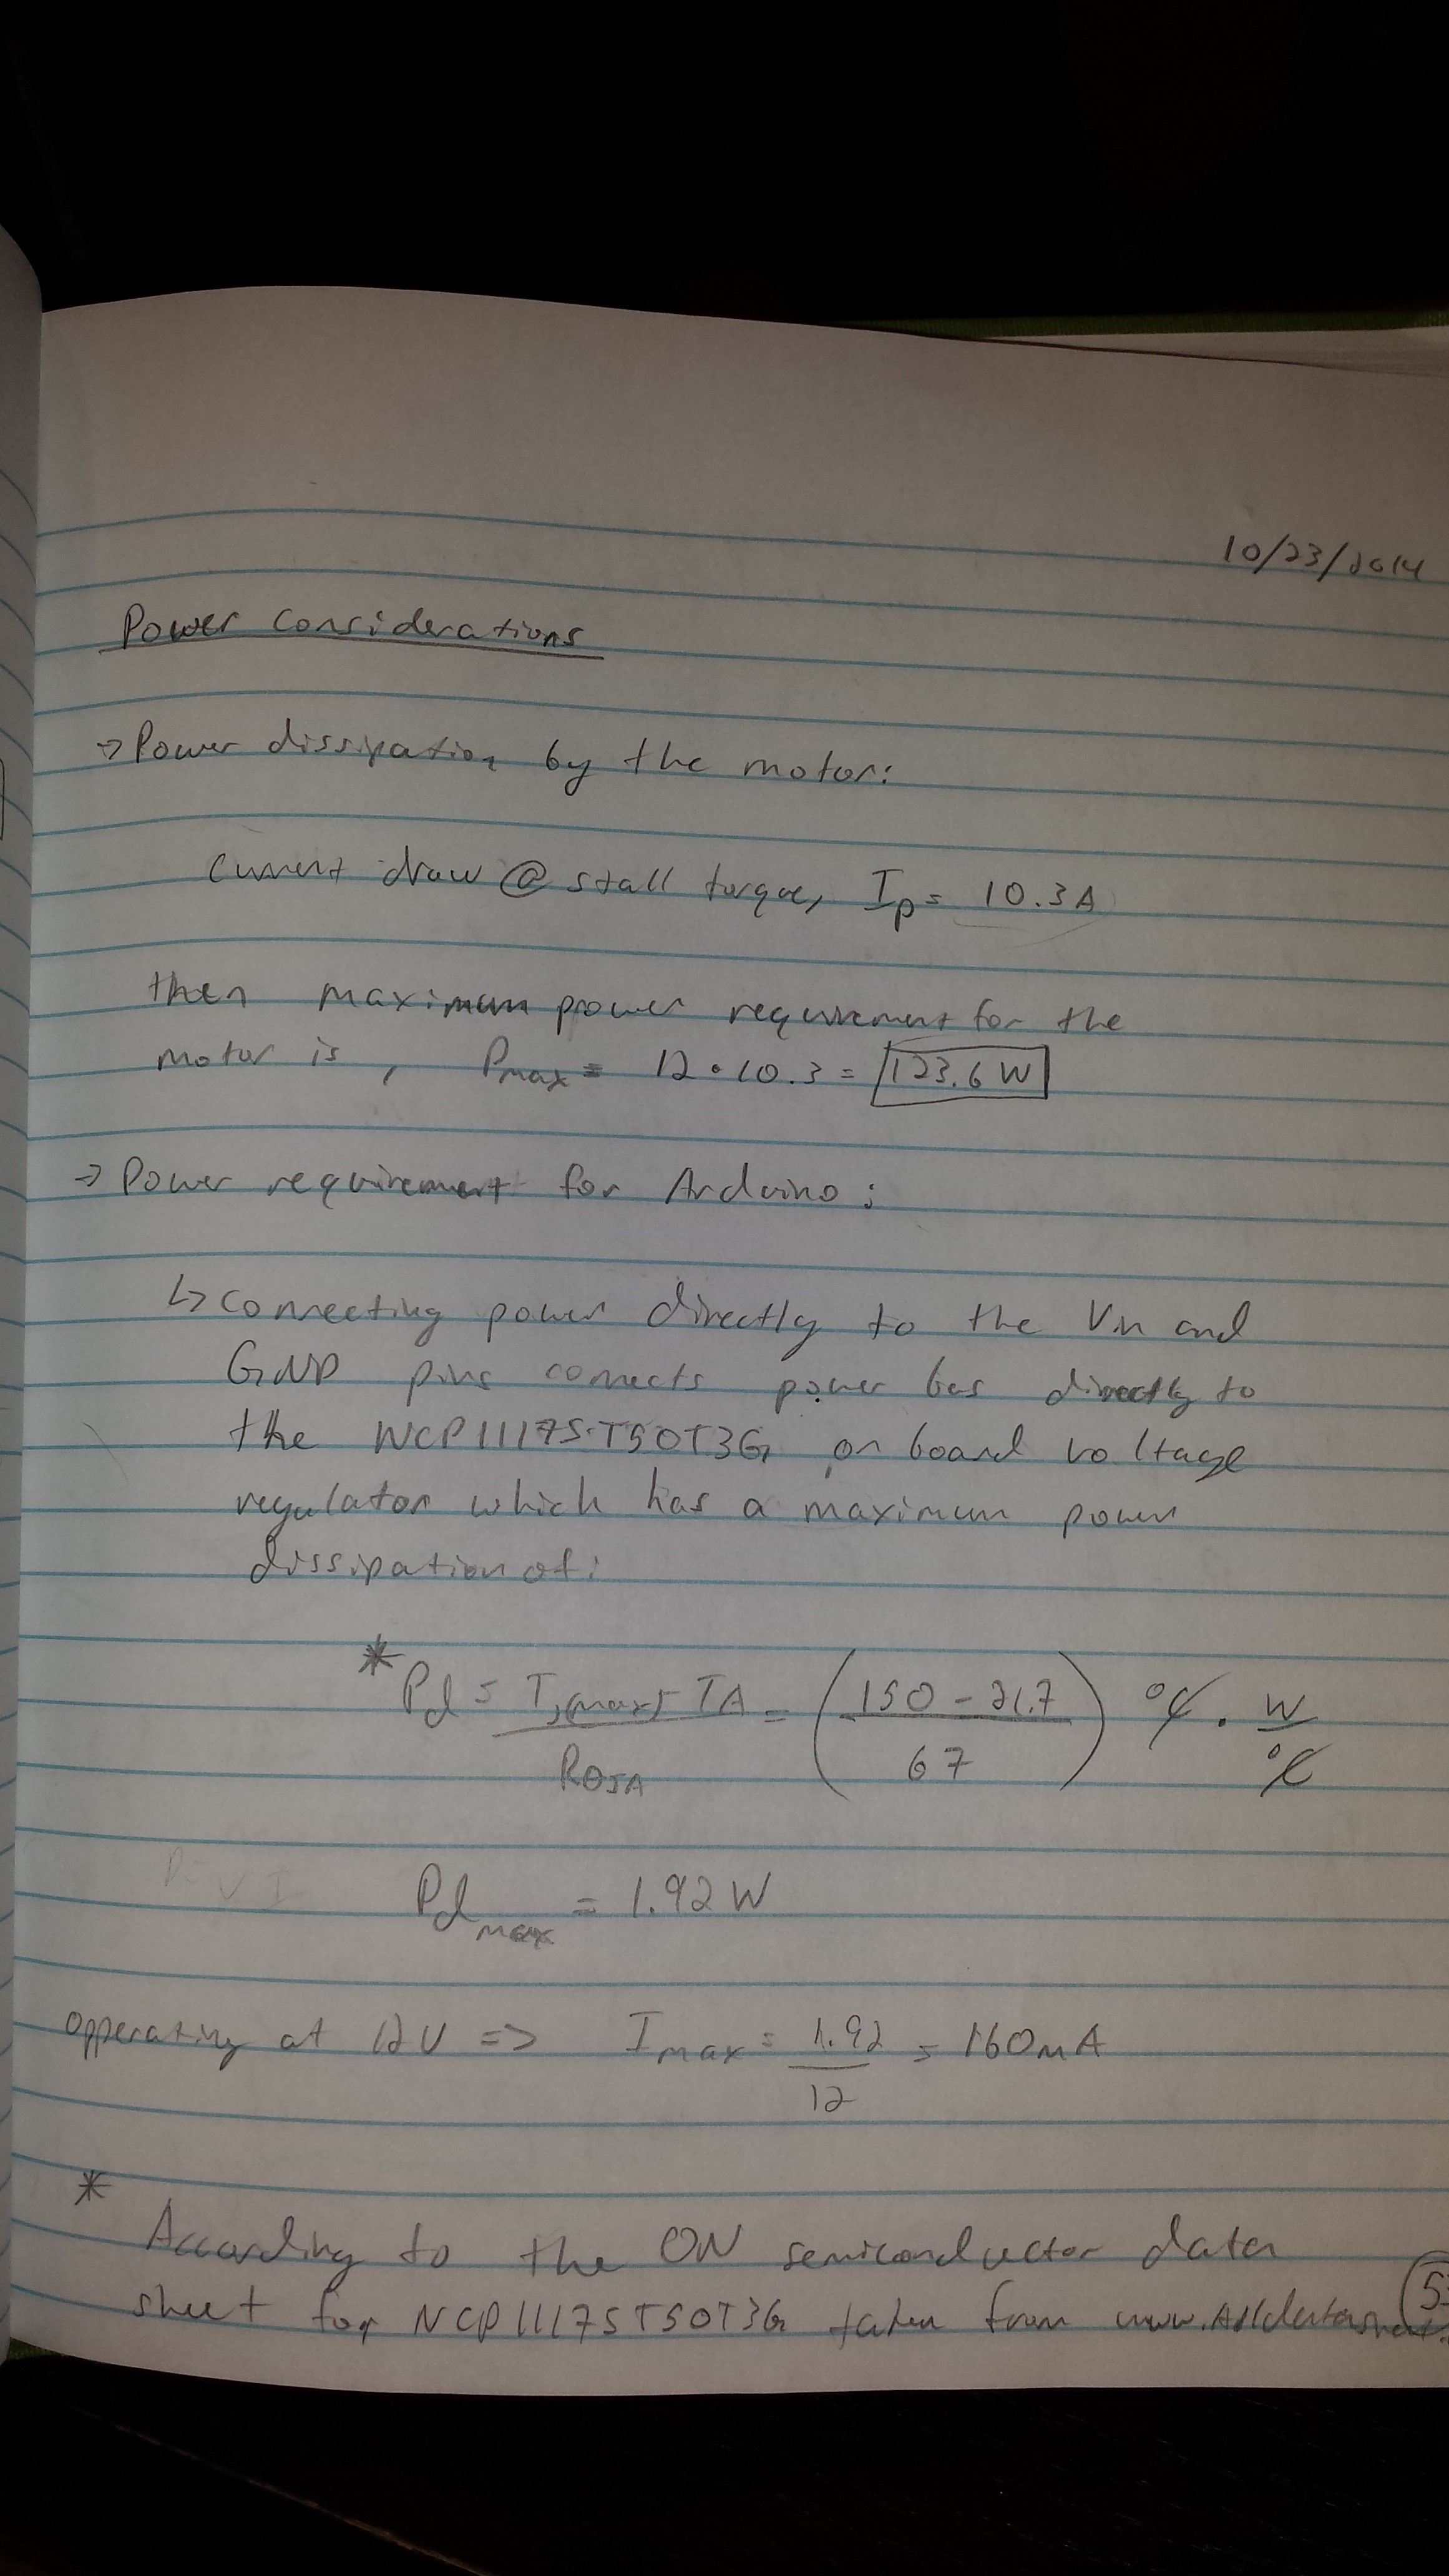 10/23/2014
Power Considerations
→ Power dissipation by the motor:
Current draw @ stall torque, Ip = 10.3A
then maximum power requirement for the
motor is, Pmax = 12 • 10.3 = 123.6 W
→ Power requirement for Arduino:
↳ Connecting power directly to the Vin and
GND pins connects power bus directly to
the NCP1117ST50T3G on board voltage
regulator which has a maximum power
dissipation of:
* Pd = TJ(max) - TA / RθJA = (150 - 21.7 / 67) °C . W / °C
P = VI
Pd max = 1.92 W
opperating at 12V => Imax = 1.92 / 12 = 160mA
*
According to the ON semiconductor data
sheet for NCP1117ST50T3G taken from www.Alldatasheet.